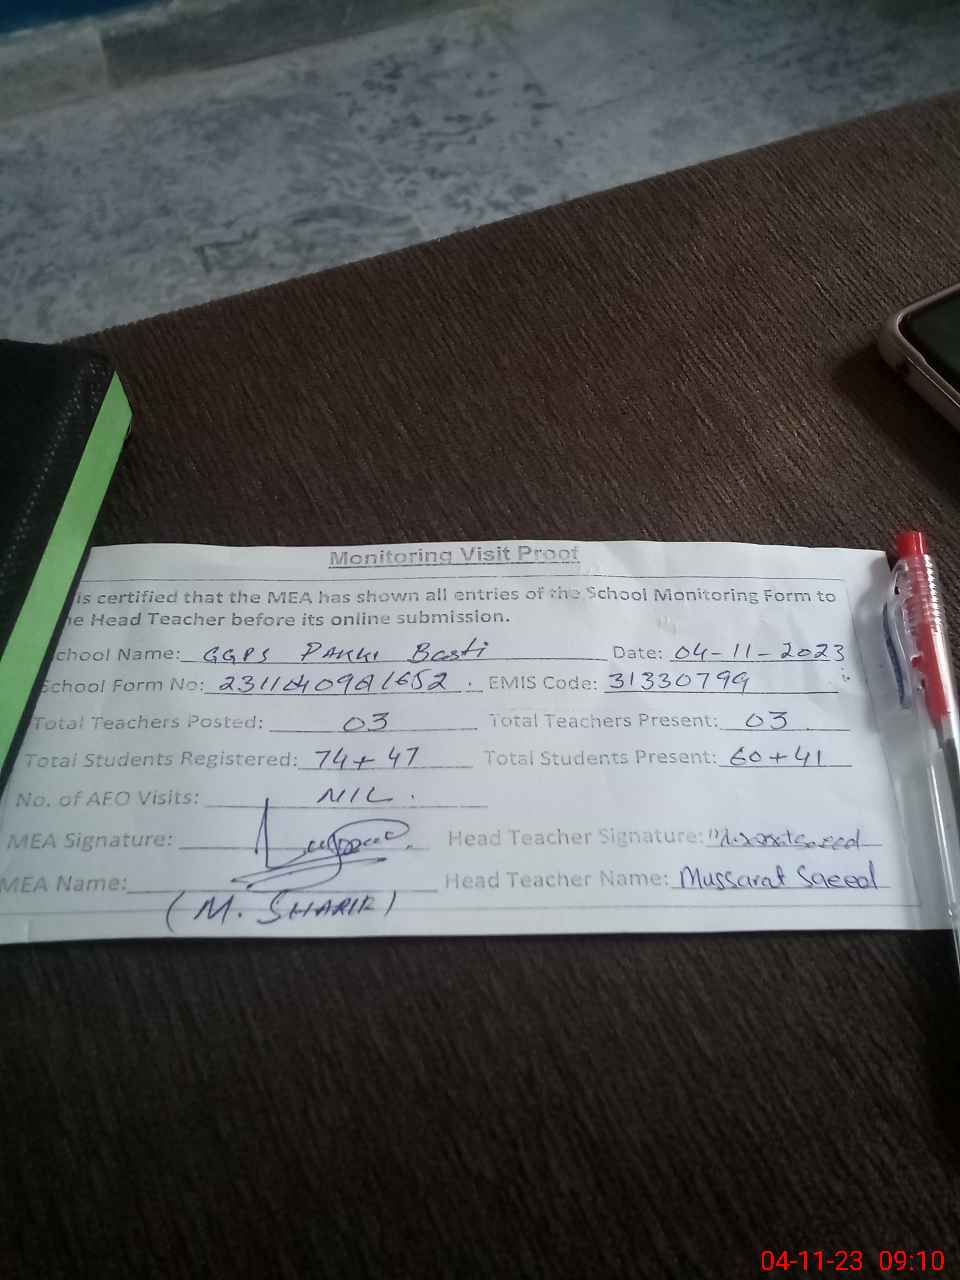 Monitoring Visit Proof
is certified that the MEA has shown all entries of the School Monitoring Form to
he Head Teacher before its online submission.
chool Name: GGPS Pakki Basti Date: 04-11-2023
School Form No: EMIS Code: 31330799
Total Teachers Posted: 03 Total Teachers Present: 03
Total Students Registered: 74+47 Total Students Present: 60+41
No. of AEO Visits: NIL.
MEA Signature: Head Teacher Signature:
MEA Name: Head Teacher Name: Mussarat Saeed
(M. SHARIF)
04-11-23 09:10